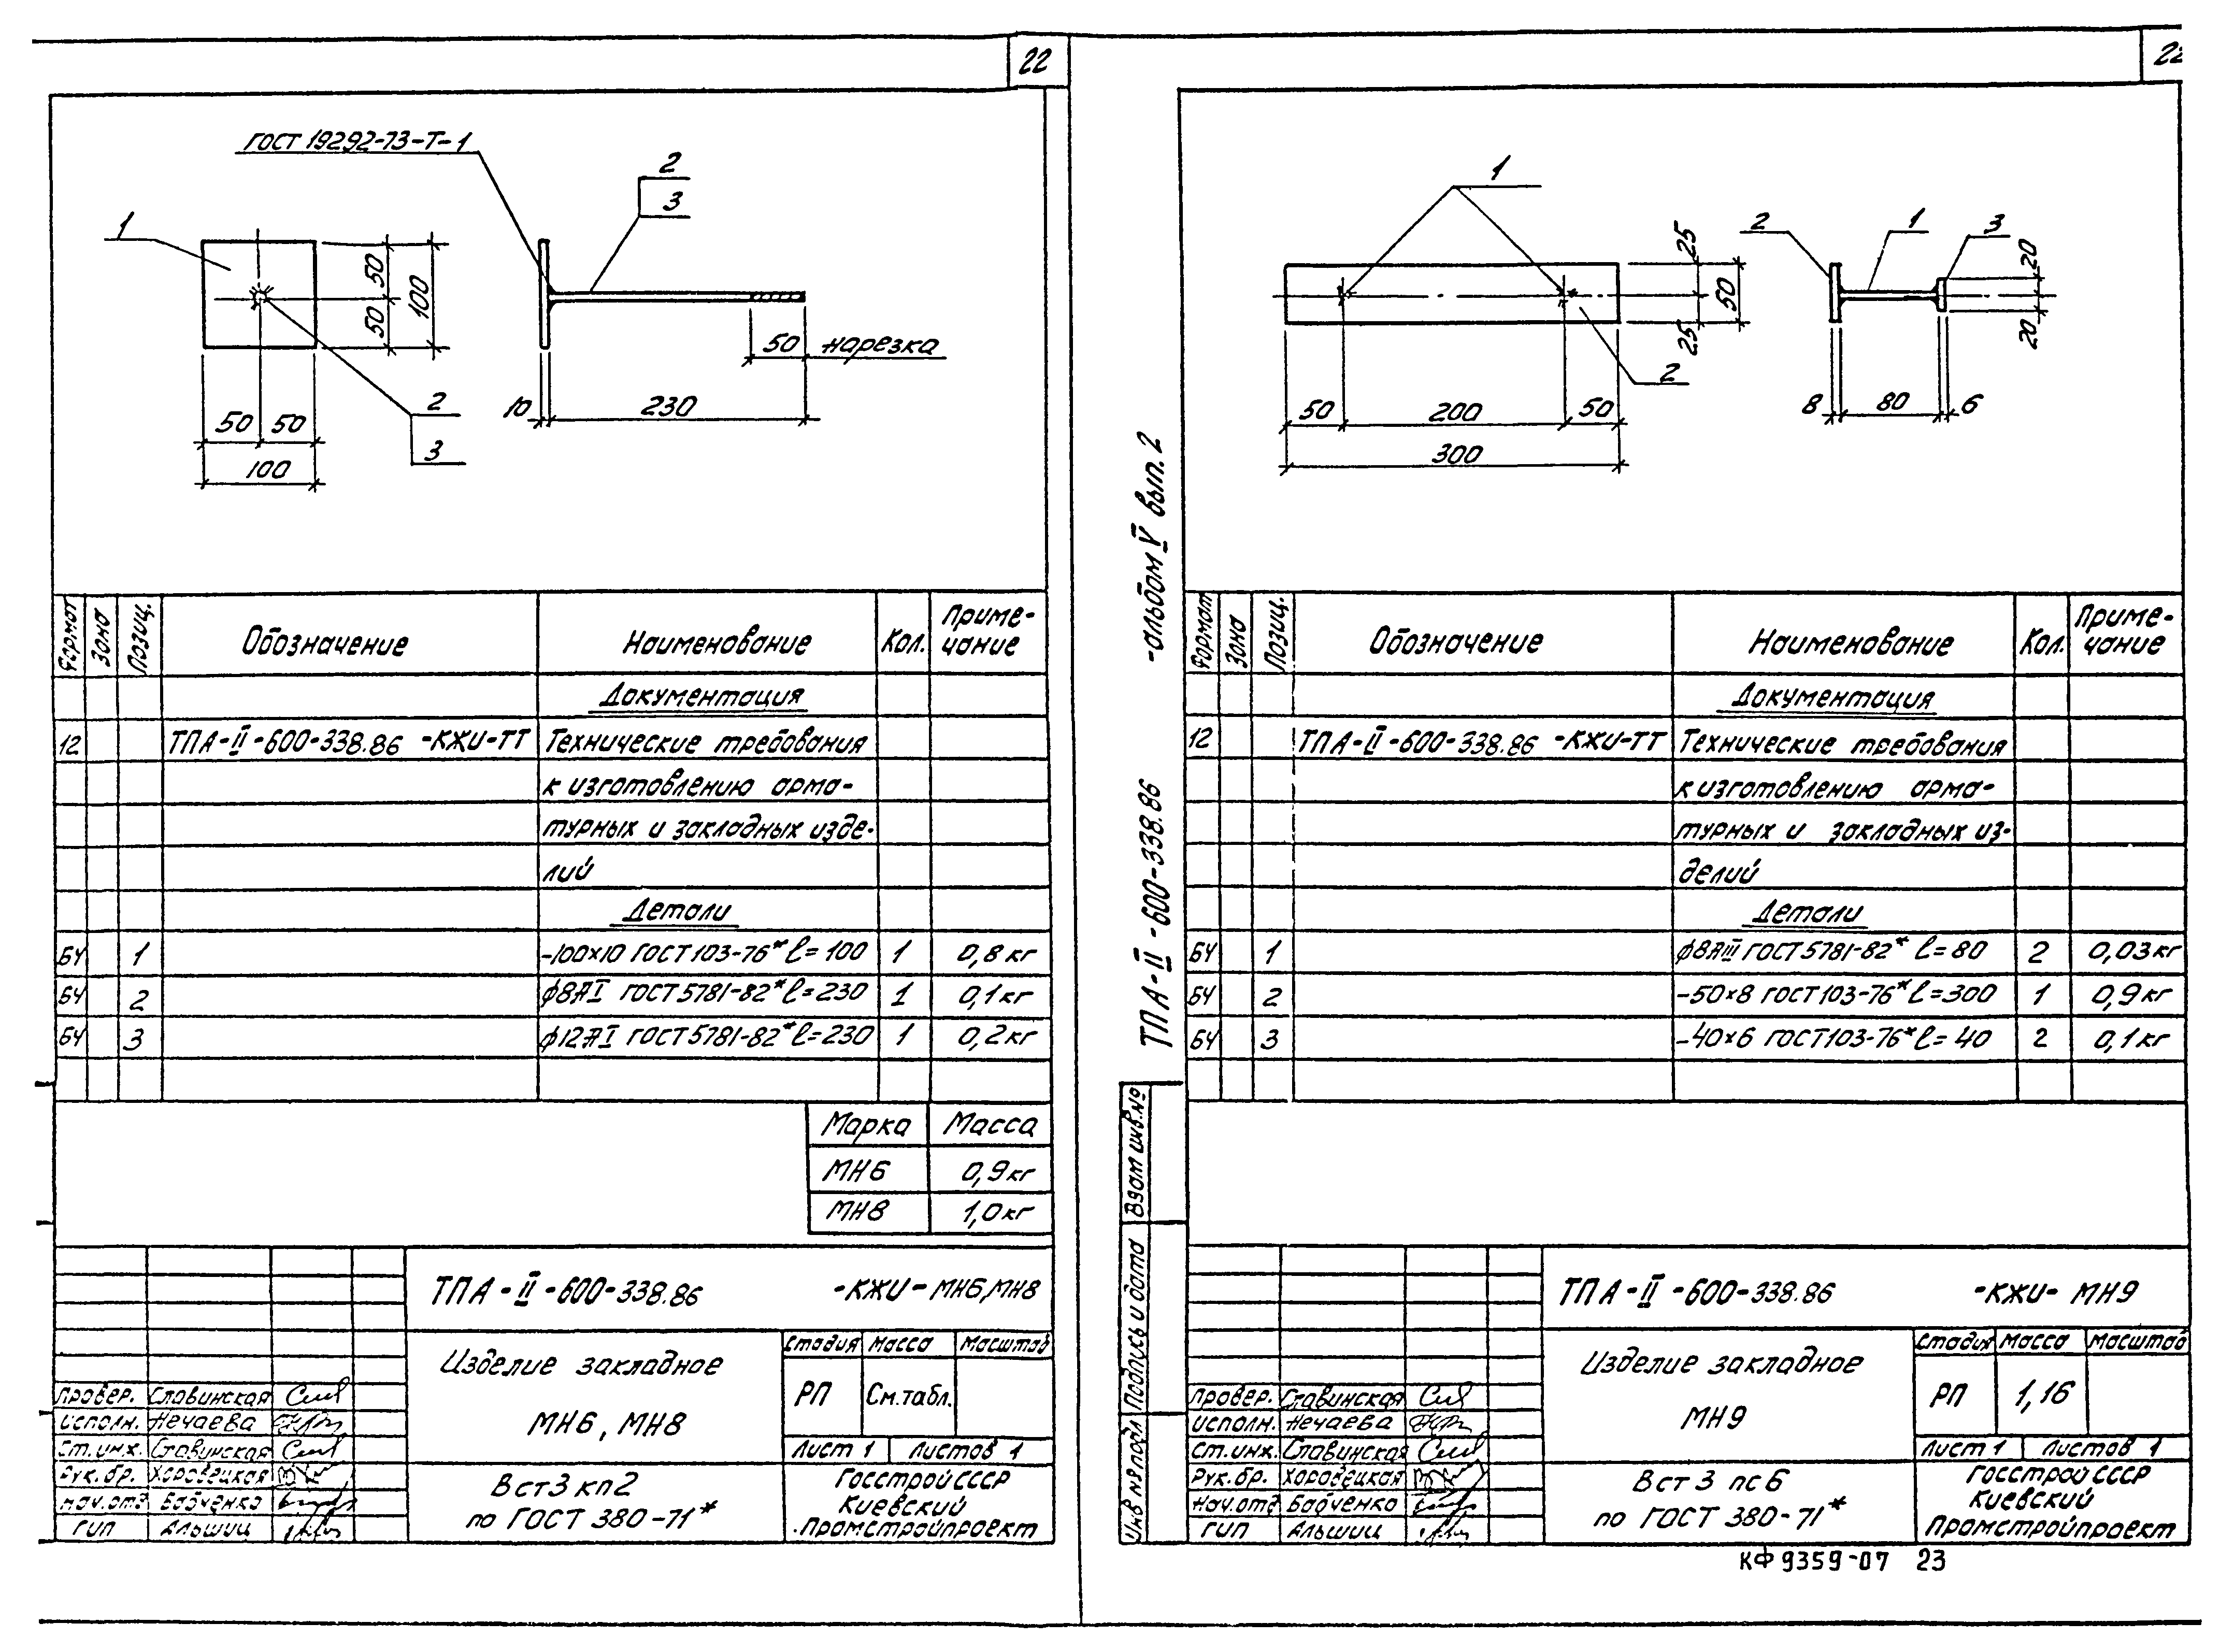 22
ГОСТ 19292-73-Т-1
2
3
1
50
50
100
2
3
50 50
100
10
230
50 нарезка
Формат Зона Позиц. Обозначение Наименование Кол. Приме-
чание
Документация
12 ТПА-II-600-338.86 -КЖИ-ТТ Технические требования
к изготовлению арма-
турных и закладных изде-
лий
Детали
БЧ 1 -100×10 ГОСТ 103-76* ℓ=100 1 0,8 кг
БЧ 2 ϕ8АI ГОСТ 5781-82* ℓ=230 1 0,1 кг
БЧ 3 ϕ12АI ГОСТ 5781-82* ℓ=230 1 0,2 кг
Марка Масса
МН6 0,9 кг
МН8 1,0 кг
ТПА-II-600-338.86 -КЖИ-МН6,МН8
Изделие закладное
МН6, МН8
Стадия Масса Масштаб
РП См.табл.
Лист 1 Листов 1
Провер. Славинская
Исполн. Нечаева
Ст.инж. Славинская
Рук.бр. Хоровецкая
Нач.отд Бабченко
ГИП Альшиц
Вст3 кп2
по ГОСТ 380-71*
Госстрой СССР
Киевский
Промстройпроект
22
1
25
50
25
2
50 200 50
300
2
1
3
20
20
8 80 6
ТПА-II-600-338.86 -альбом V вып. 2
Формат Зона Позиц. Обозначение Наименование Кол. Приме-
чание
Документация
12 ТПА-II-600-338.86 -КЖИ-ТТ Технические требования
к изготовлению арма-
турных и закладных из-
делий
Детали
БЧ 1 ϕ8АIII ГОСТ 5781-82* ℓ=80 2 0,03 кг
БЧ 2 -50×8 ГОСТ 103-76* ℓ=300 1 0,9 кг
БЧ 3 -40×6 ГОСТ 103-76* ℓ=40 2 0,1 кг
Взам инв.№
Подпись и дата
Инв № подл
ТПА-II-600-338.86 -КЖИ- МН9
Изделие закладное
МН9
Стадия Масса Масштаб
РП 1,16
Лист 1 Листов 1
Провер. Славинская
Исполн. Нечаева
Ст.инж. Славинская
Рук.бр. Хоровецкая
Нач.отд Бабченко
ГИП Альшиц
Вст3 пс6
по ГОСТ 380-71*
Госстрой СССР
Киевский
Промстройпроект
КФ 9359-07 23